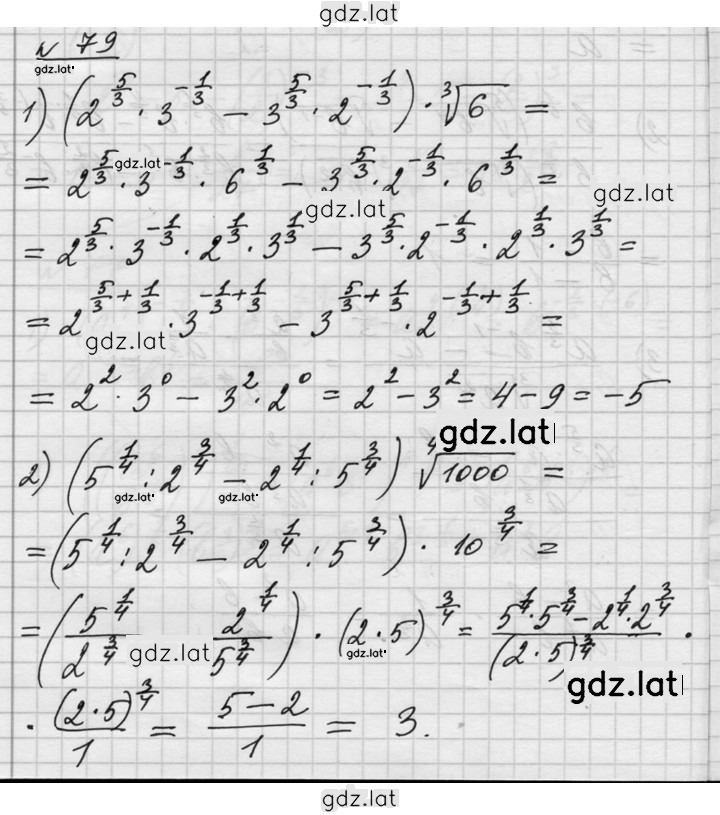 gdz.lat
№ 79
gdz.lat
1) (2^(5/3) · 3^(-1/3) - 3^(5/3) · 2^(-1/3)) · ∛6 =
= 2^(5/3) · 3^(-1/3) · 6^(1/3) - 3^(5/3) · 2^(-1/3) · 6^(1/3) =
gdz.lat
gdz.lat
gdz.lat
= 2^(5/3) · 3^(-1/3) · 2^(1/3) · 3^(1/3) - 3^(5/3) · 2^(-1/3) · 2^(1/3) · 3^(1/3) =
= 2^(5/3+1/3) · 3^(-1/3+1/3) - 3^(5/3+1/3) · 2^(-1/3+1/3) =
gdz.lat
= 2^2 · 3^0 - 3^2 · 2^0 = 2^2 - 3^2 = 4 - 9 = -5
gdz.lat
2) (5^(1/4) : 2^(3/4) - 2^(1/4) : 5^(3/4)) ∜1000 =
gdz.lat
gdz.lat
= (5^(1/4) : 2^(3/4) - 2^(1/4) : 5^(3/4)) · 10^(3/4) =
= (5^(1/4)/2^(3/4) 2^(1/4)/5^(3/4)) · (2·5)^(3/4) = (5^(1/4) · 5^(3/4) - 2^(1/4) · 2^(3/4))/(2·5)^(3/4) ·
gdz.lat
gdz.lat
gdz.lat
· (2·5)^(3/4)/1 = (5-2)/1 = 3.
gdz.lat